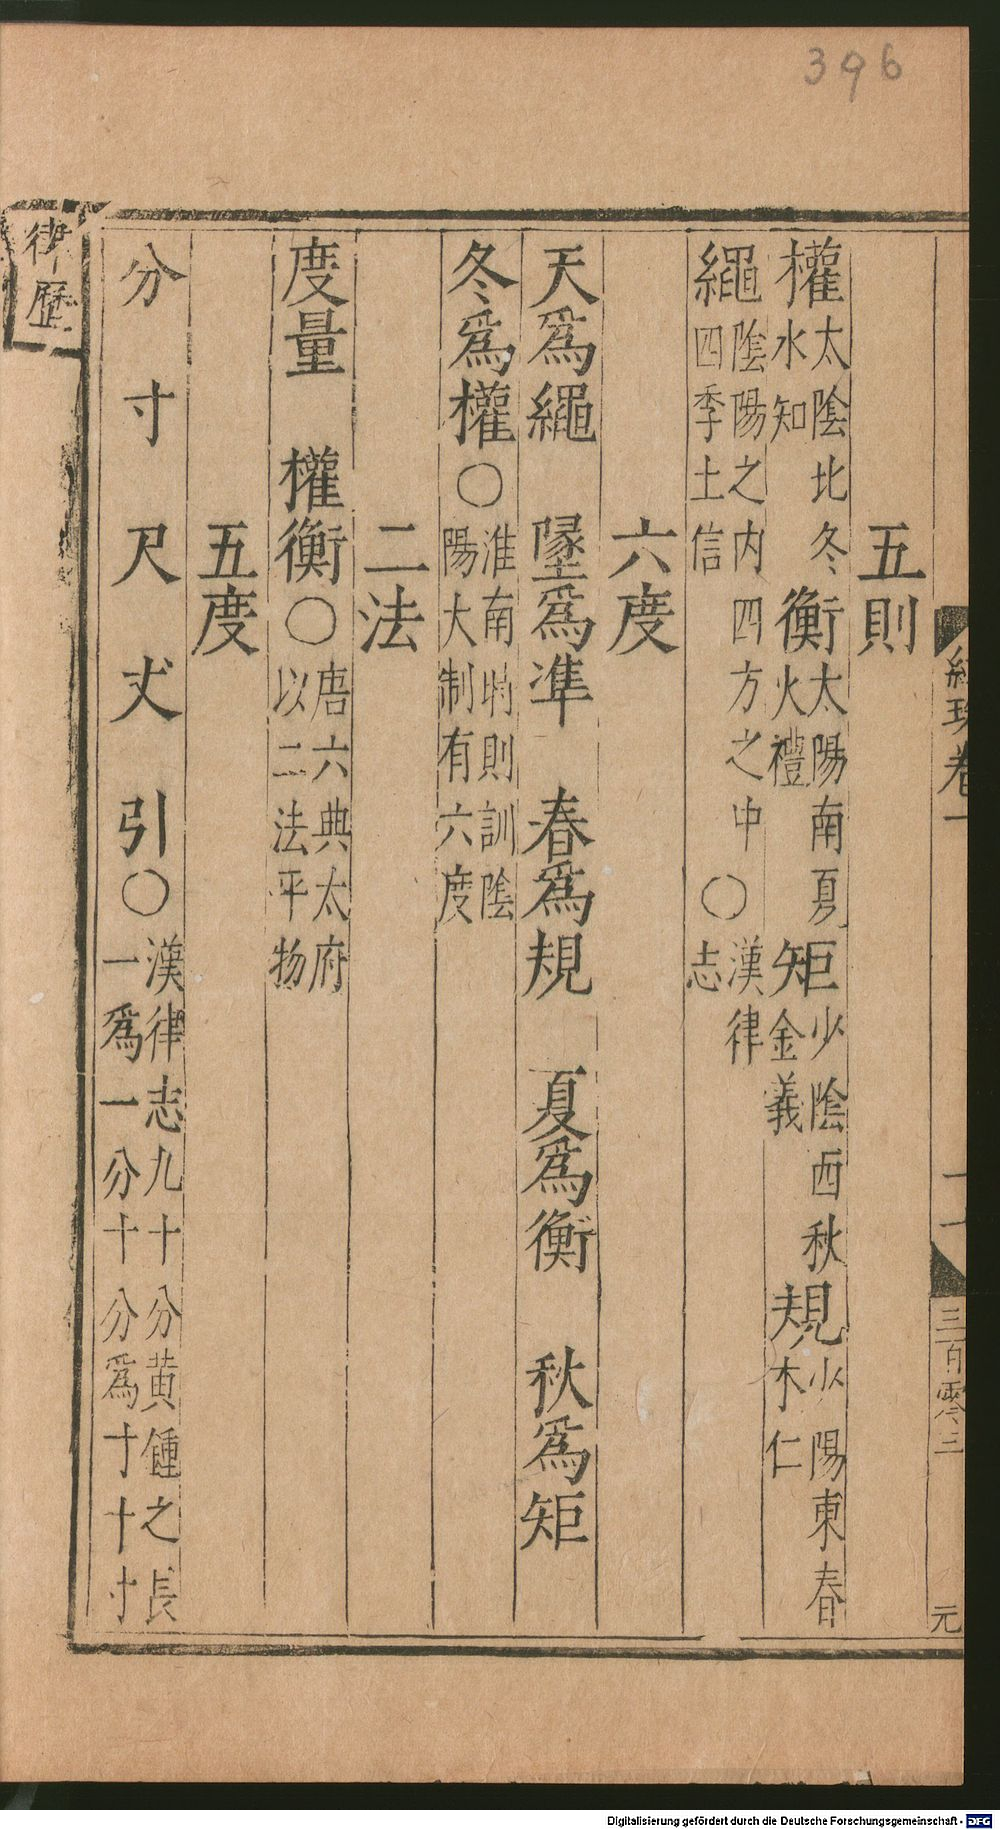 396
五則
權太陰北冬水知 衡太陽南夏火禮 矩少陰西秋金義 規少陽東春木仁
繩陰陽之内四方之中四季土信○漢律志
六度
天爲繩 墜爲準 春爲規 夏爲衡 秋爲矩
冬爲權○淮南時則訓陰陽大制有六度
二法
度量 權衡○唐六典太府以二法平物
五度
分 寸 尺 丈 引○漢律志九十分黄鍾之長一爲一分十分爲寸十寸
律歷
卷一
三百零三
元
Digitalisierung gefördert durch die Deutsche Forschungsgemeinschaft - DFG